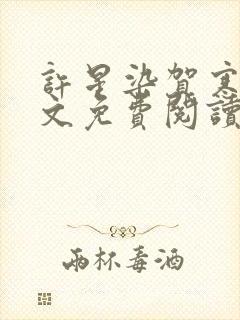 許星染賀
文免費閱讀
兩杯毒酒